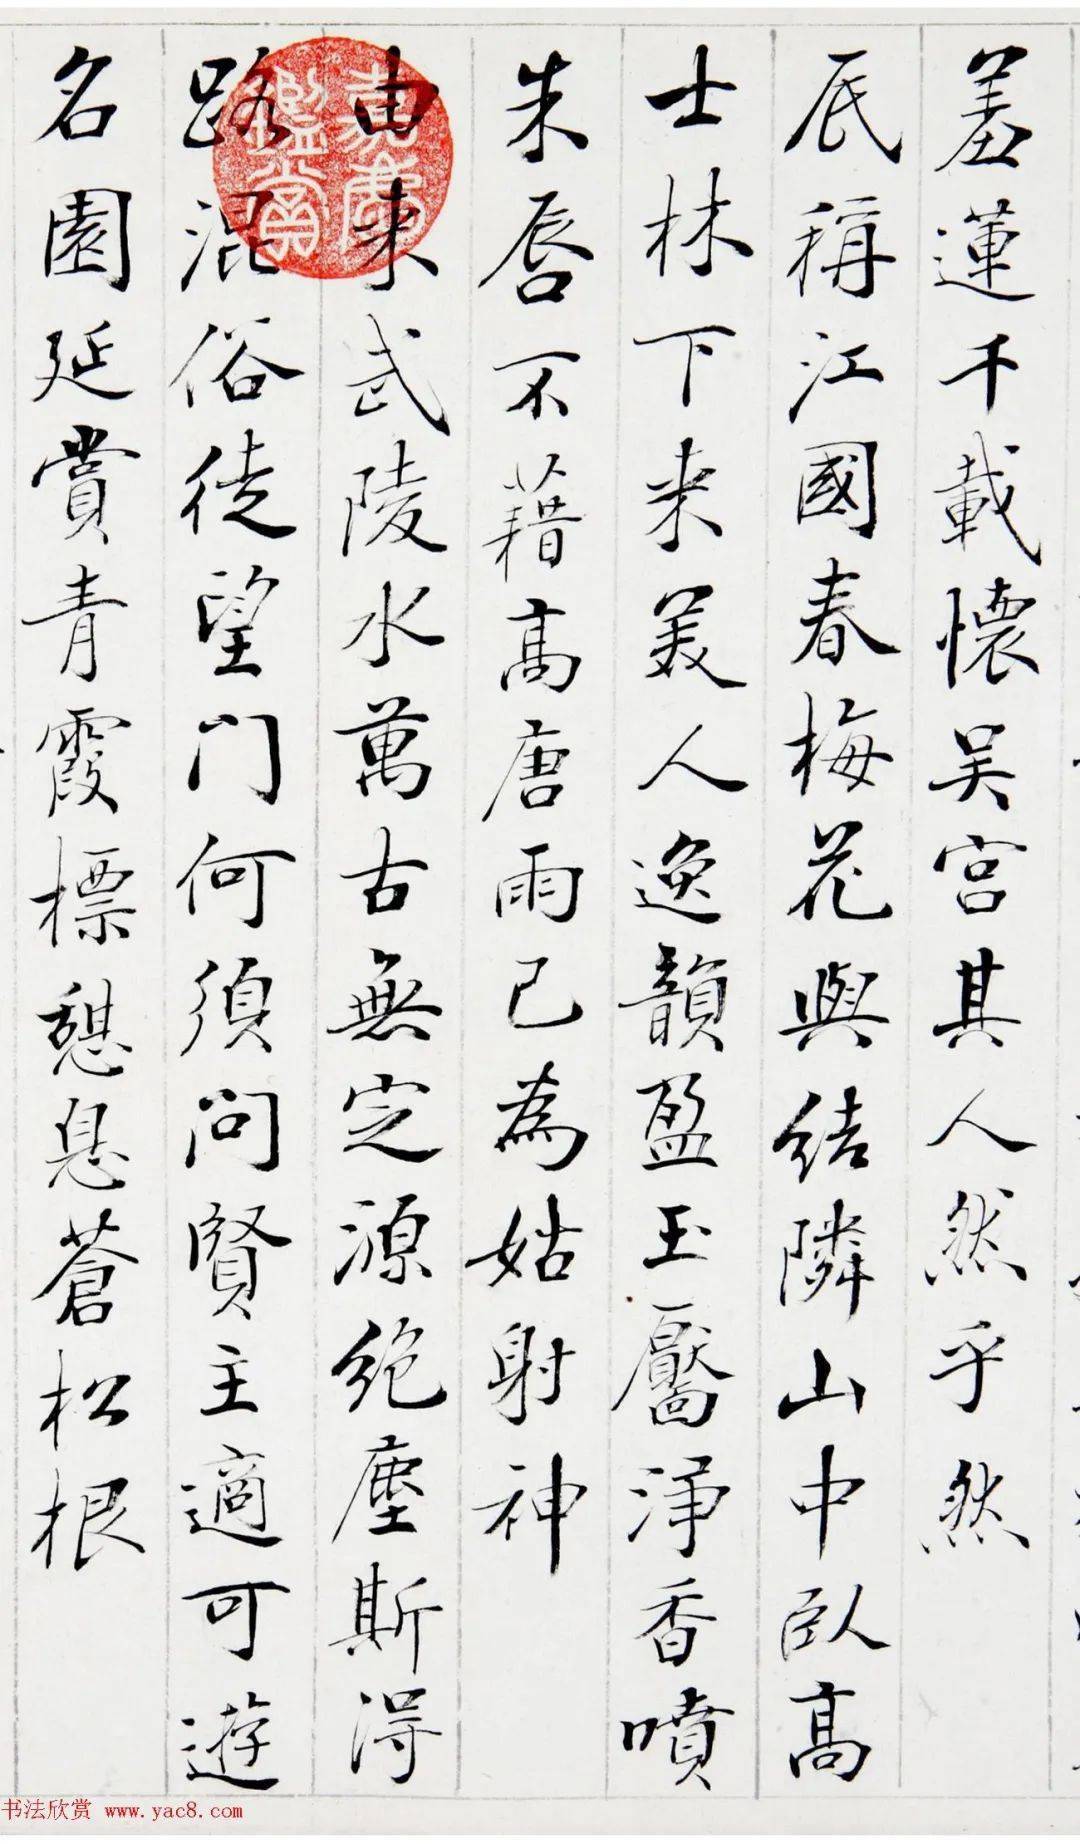 羞蓮千載懷吴宫其人然乎然
辰稱江國春梅花與結隣山中臥高
士林下来美人逸韻盈玉靨浄香噴
朱唇不藉高唐雨已為姑射神
由來武陵水萬古無定源絶塵斯得
路混俗徒望門何須問賢主適可遊
名園延賞青霞標憩息蒼松根
嘉慶鑑賞
书法欣赏 www.yac8.com